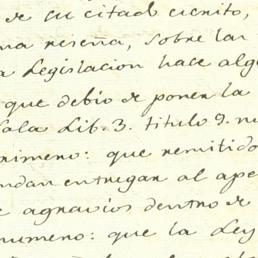 de su citad escrito,
na reseña, sobre lar
a Legislacion hace alg
que debio de poner la
Sala Lib. 3. titulo 9. nu
rimero: que remitido
ndan entregar al ape
e agravios dentro de
numero: que la Ley